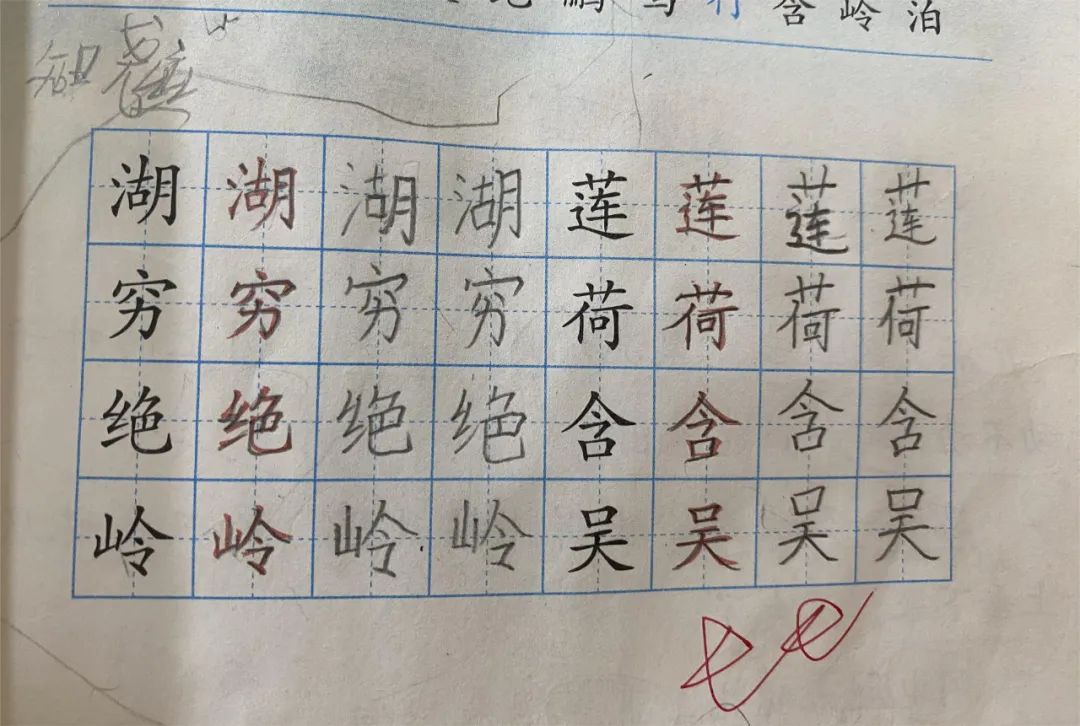 含岭泊
湖湖湖湖莲莲莲莲
穷穷穷穷荷荷荷荷
绝绝绝绝含含含含
岭岭岭岭吴吴吴吴